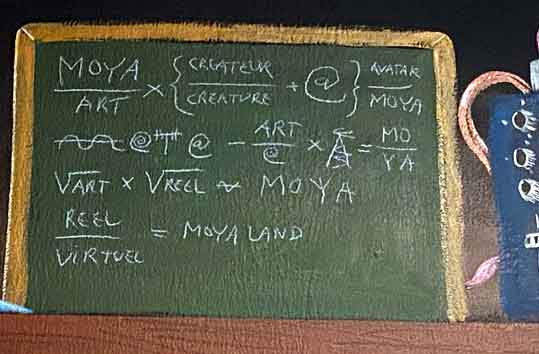 MOYA/ART × {CREATEUR/CREATURE + @} AVATAR/MOYA
@ @ − ART/@ × = MO/YA
√ART × √REEL ~ MOYA
REEL/VIRTUEL = MOYA LAND